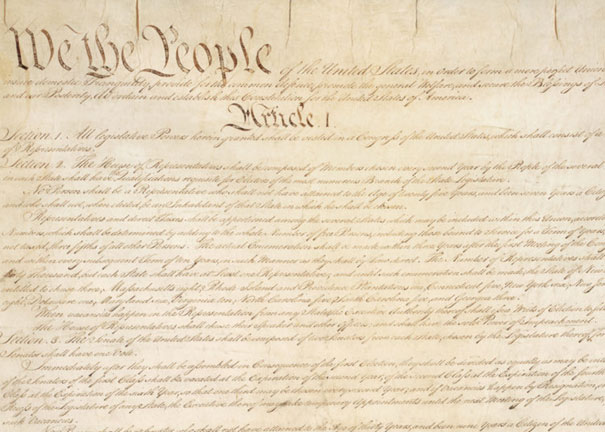 We the People of the United States, in Order to form a more perfect
insure domestic Tranquility, provide for the common defence, promote the general Welfare, and secure the Blessings of
and our Posterity, do ordain and establish this Constitution for the United States of America.
Article. I.
Section. 1. All legislative Powers herein granted shall be vested in a Congress of the United States, which shall consist of a
of Representatives.
Section. 2. The House of Representatives shall be composed of Members chosen every second Year by the People of the several
in each State shall have Qualifications requisite for Electors of the most numerous Branch of the State Legislature.
No Person shall be a Representative who shall not have attained to the Age of twenty five Years, and been seven Years a
and who shall not, when elected, be an Inhabitant of that State in which he shall be chosen.
Representatives and direct Taxes shall be apportioned among the several States which may be included within this Union, according
Numbers, which shall be determined by adding to the whole Number of free Persons, including those bound to Service for a Term of Years,
not taxed, three fifths of all other Persons. The actual Enumeration shall be made within three Years after the first Meeting of the
and within every subsequent Term of ten Years, in such Manner as they shall by Law direct. The Number of Representatives shall
thirty Thousand, but each State shall have at Least one Representative; and until such enumeration shall be made, the State of New
entitled to chuse three, Massachusetts eight, Rhode Island and Providence Plantations one, Connecticut five, New York six, New
eight, Delaware one, Maryland six, Virginia ten, North Carolina five, South Carolina five, and Georgia three.
When vacancies happen in the Representation from any State, the Executive Authority thereof shall issue Writs of Election to
The House of Representatives shall chuse their Speaker and other Officers; and shall have the sole Power of Impeachment.
Section. 3. The Senate of the United States shall be composed of two Senators from each State, chosen by the Legislature thereof,
Senator shall have one Vote.
Immediately after they shall be assembled in Consequence of the first Election, they shall be divided as equally as may be
of the Senators of the first Class shall be vacated at the Expiration of the second Year, of the second Class at the Expiration of the fourth
Class at the Expiration of the sixth Year, so that one third may be chosen every second Year; and if Vacancies happen by Resignation, or
Recess of the Legislature of any State, the Executive thereof may make temporary Appointments until the next Meeting of the Legislature,
such Vacancies.
No Person shall be a Senator who shall not have attained to the Age of thirty Years, and been nine Years a Citizen of the United